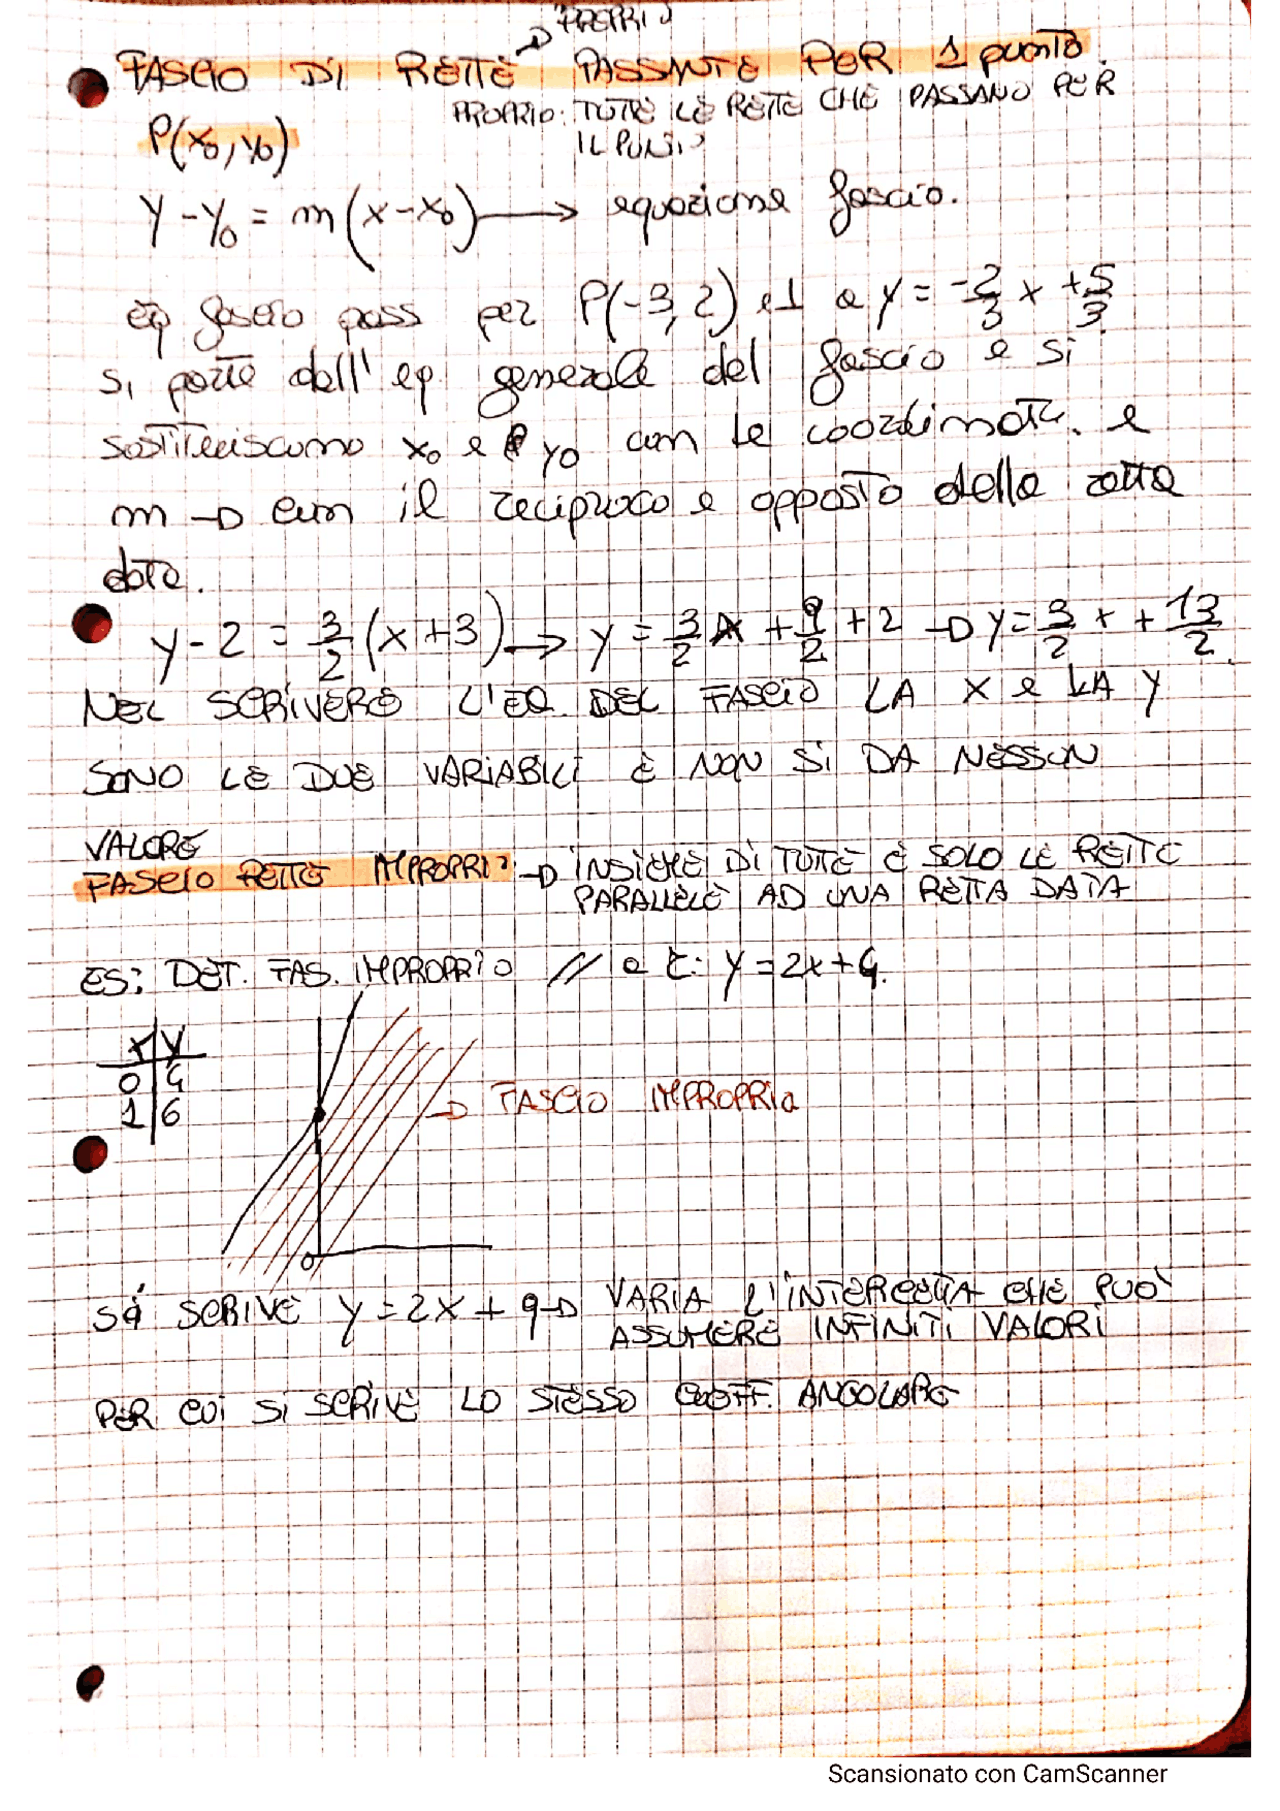 PROPRIO
FASCIO DI RETTE PASSANTE PER 1 punto.
PROPRIO: TUTTE LE RETTE CHE PASSANO PER
P(x₀, y₀) IL PUNTO
y - y₀ = m(x - x₀) → equazione fascio.
eq fascio pass per P(-3, 2) e ⊥ a y = -2/3 x + 5/3
si parte dall'eq generale del fascio e si
sostituiscono x₀ e y₀ con le coordinate. e
m → con il reciproco e opposto della retta
data.
y - 2 = 3/2 (x + 3) → y = 3/2 x + 9/2 + 2 → y = 3/2 x + 13/2
NEL SCRIVERE L'EQ. DEL FASCIO LA X e LA Y
SONO LE DUE VARIABILI E NON SI DA NESSUN
VALORE
FASCIO RETTE IMPROPRIO → INSIEME DI TUTTE E SOLO LE RETTE
PARALLELE AD UNA RETTA DATA
ES: DET. FAS. IMPROPRIO // a r: y = 2x + 4.
x | y
0 | 4
1 | 6
→ FASCIO IMPROPRIO
0
SI SCRIVE y = 2x + q → VARIA L'INTERCETTA CHE PUÒ
ASSUMERE INFINITI VALORI
PER CUI SI SCRIVE LO STESSO COEFF. ANGOLARE
Scansionato con CamScanner